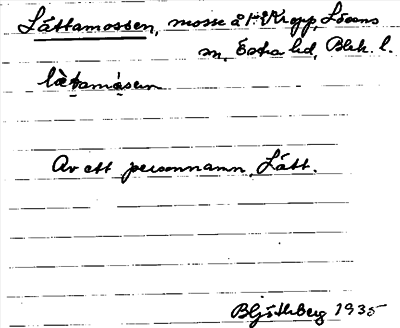 Låttamossen, mosse å H. Kropp, Lösens
sn, Östra hd, Blek. l.
låttamåsen
Av ett personnamn, Lått.
B Hjöthberg 1935